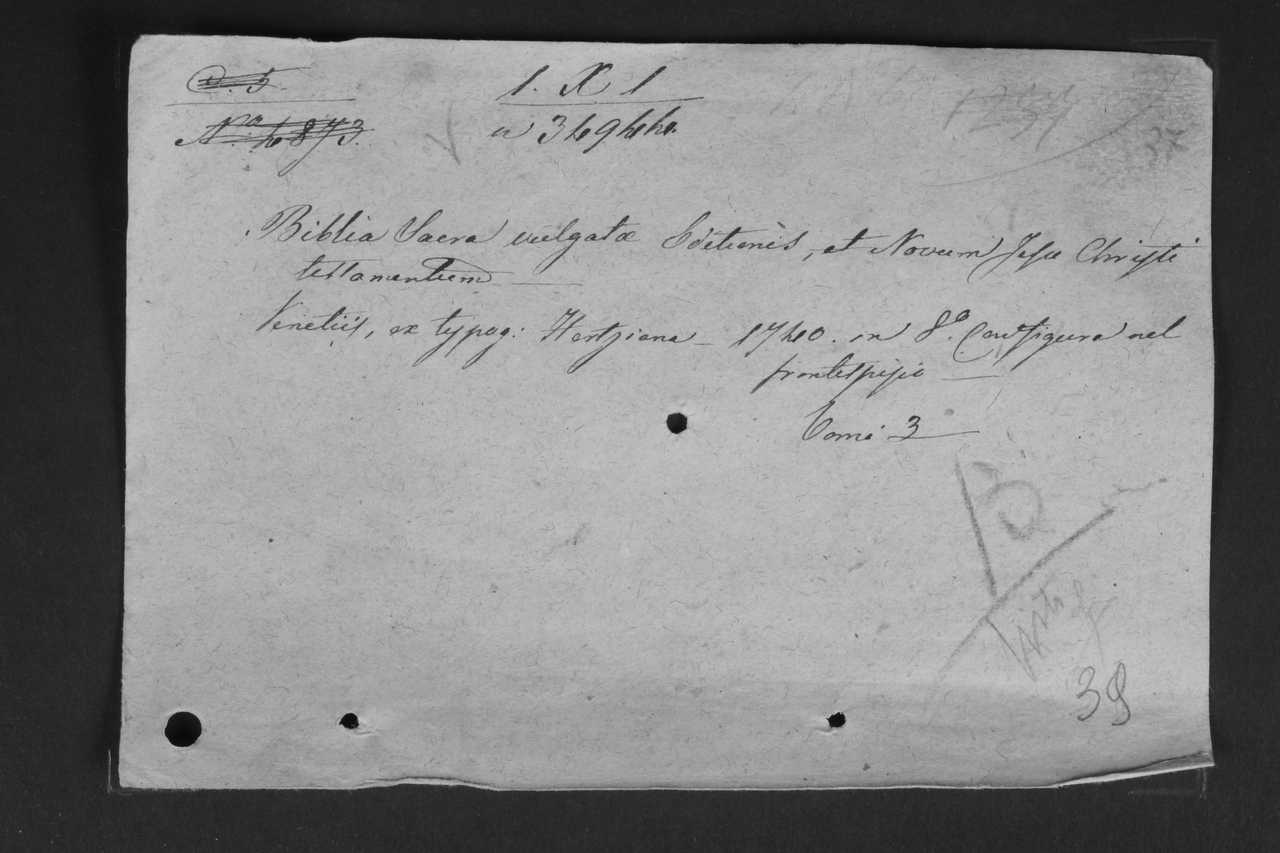 D. 5. 1. X 1
N.º 4873. a 34944.
1297
Biblia Sacra vulgatæ Editionis, et Novum Jesu Christi
testamentum
Venetiis, ex typog: Hertziana 1740. in 8.º Con figura nel
frontespizio
Tomi 3
Visto
38